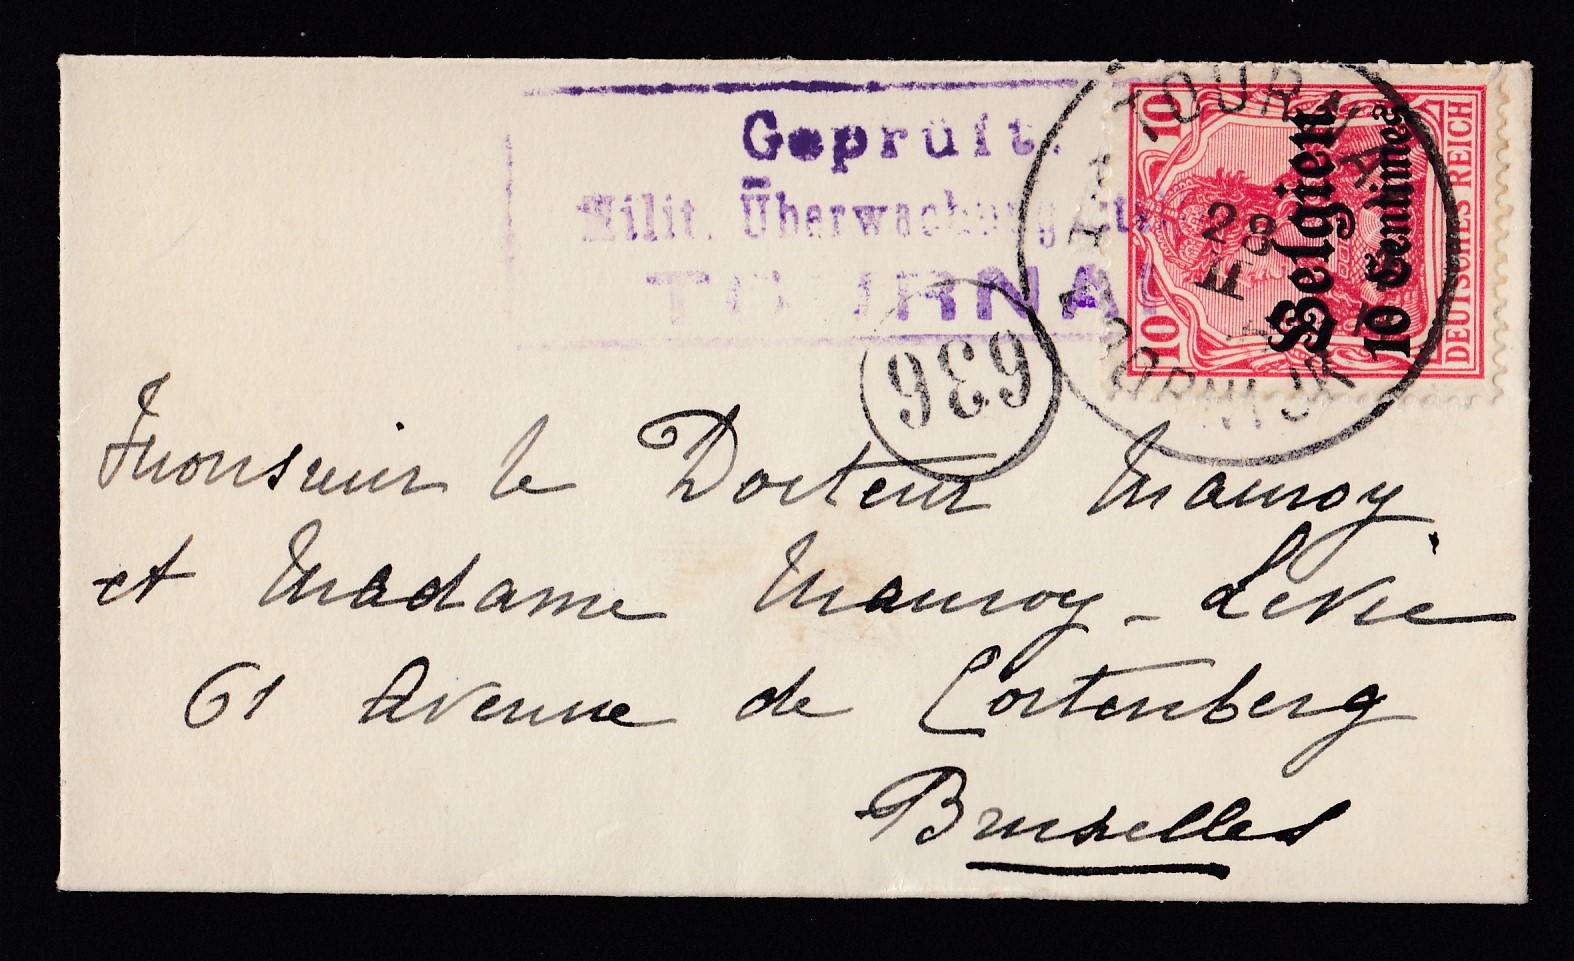 Geprüft.
Milit. Überwachungsstelle
TOURNAI
TOURNAI
DOORNIJK
28
II
636
10
10
DEUTSCHES REICH
Belgien
10 Centimes
Monsieur le Docteur Mauroy
et Madame Mauroy - Levie
61 Avenue de Cortenberg
Bruxelles